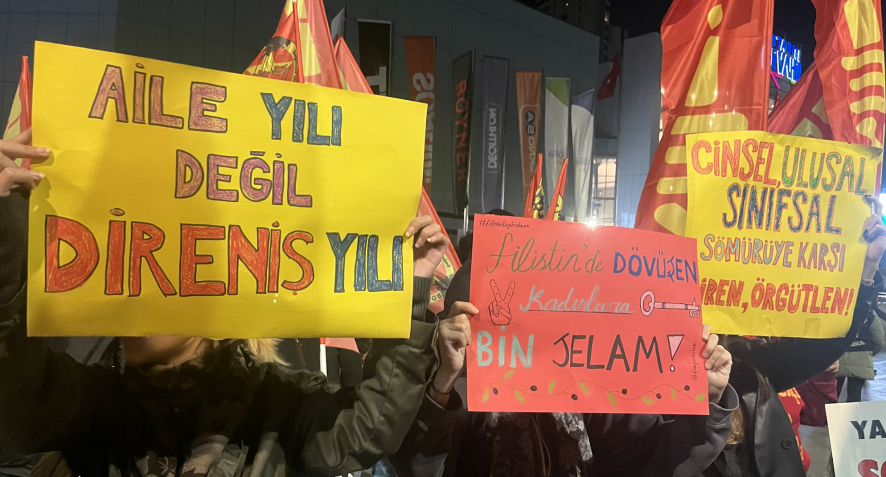 AİLE YILI
DEĞİL
DİRENİŞ YILI
filistin'de DÖVÜŞEN
Kadınlara
BİN JELAM!
CİNSEL, ULUSAL,
SINIFSAL
SÖMÜRÜYE KARŞI
İREN, ÖRGÜTLEN!
BOYNER
DECATHLON
YA